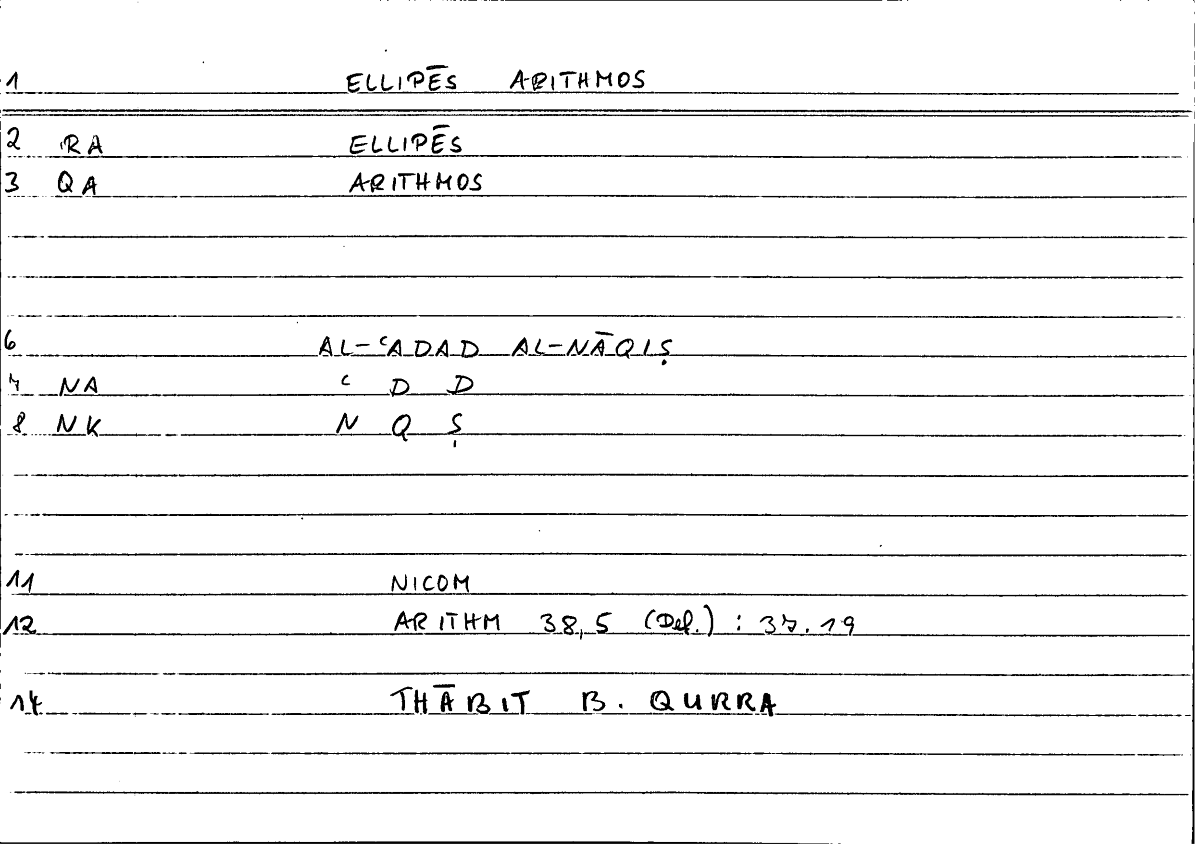 1 ELLIPĒS ARITHMOS
2 RA ELLIPĒS
3 QA ARITHMOS
6 AL-ʿADAD AL-NĀQIṢ
7 NA ʿ D D
8 NK N Q Ṣ
11 NICOM
12 ARITHM 38,5 (Def.) : 37.19
14 THĀBIT B. QURRA